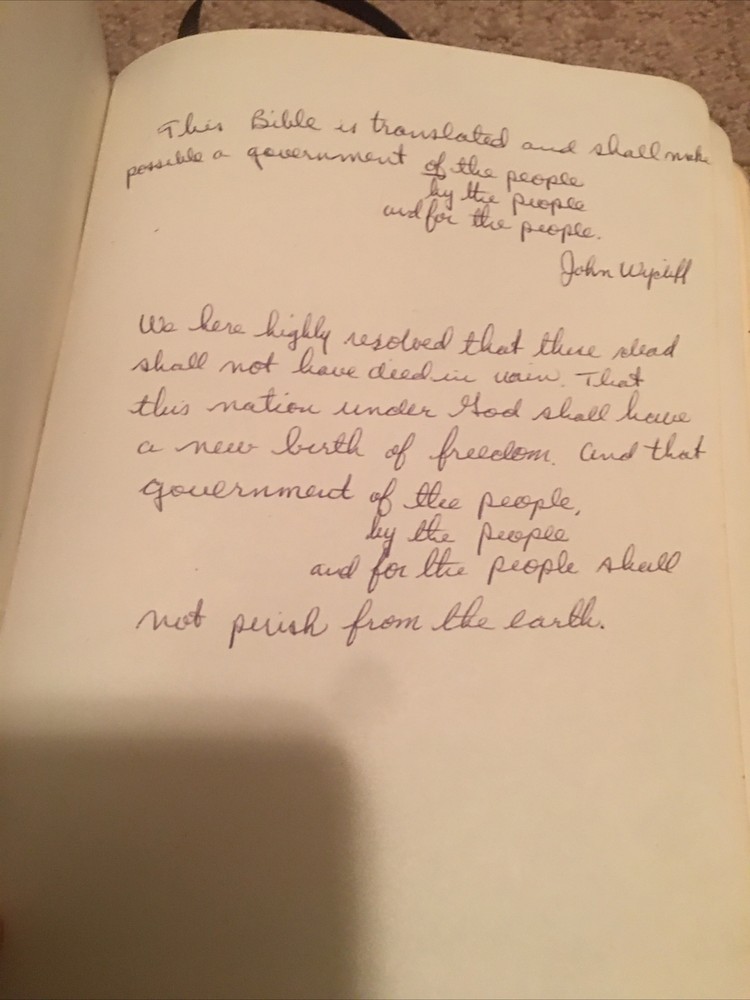 This Bible is translated and shall make
possible a government of the people
by the people
and for the people.
John Wycliff
We here highly resolved that these dead
shall not have died in vain. That
this nation under God shall have
a new birth of freedom. And that
government of the people,
by the people
and for the people shall
not perish from the earth.